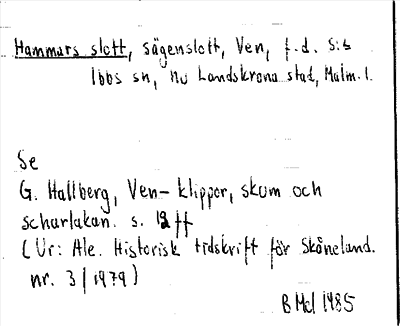 Hammars slott, sägenslott, Ven, f.d. S:t
Ibbs sn, nu Landskrona stad, Malm. l.
Se
G. Hallberg, Ven – klippor, skum och
scharlakan. s. 12 ff
(Ur: Ale. Historisk tidskrift för Skåneland.
nr. 3/1979)
BMcl 1985